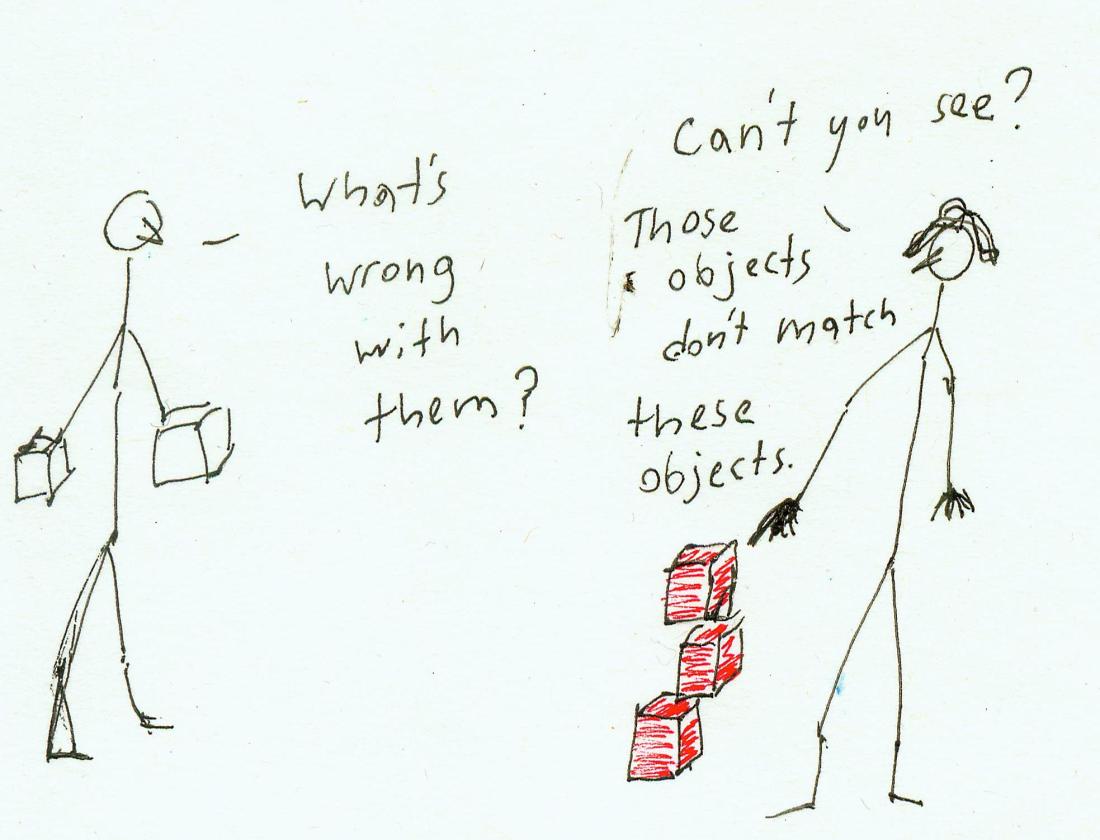 What's
wrong
with
them?
Can't you see?
Those
objects
don't match
these
objects.